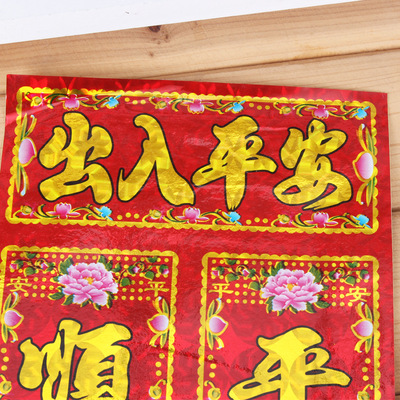 出入平安
安 平
順
安 平
平